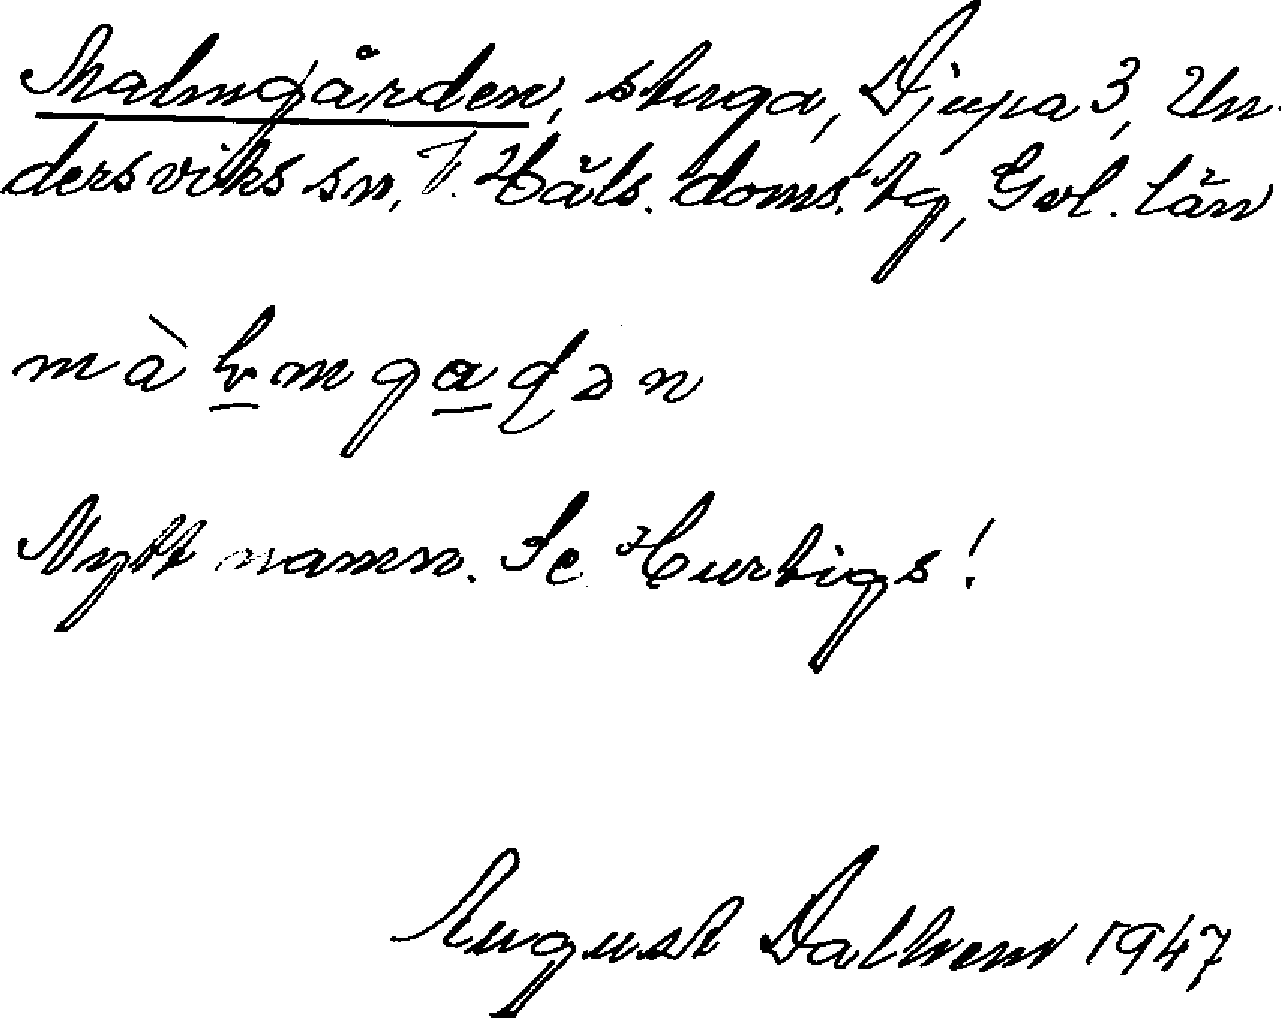 Malmgården, stuga, Djupa 3, Un-
dersviks sn, V. Häls. doms. tg, Gvl. län
Nytt namn. Se Hurtigs!
August Dalhem 1947